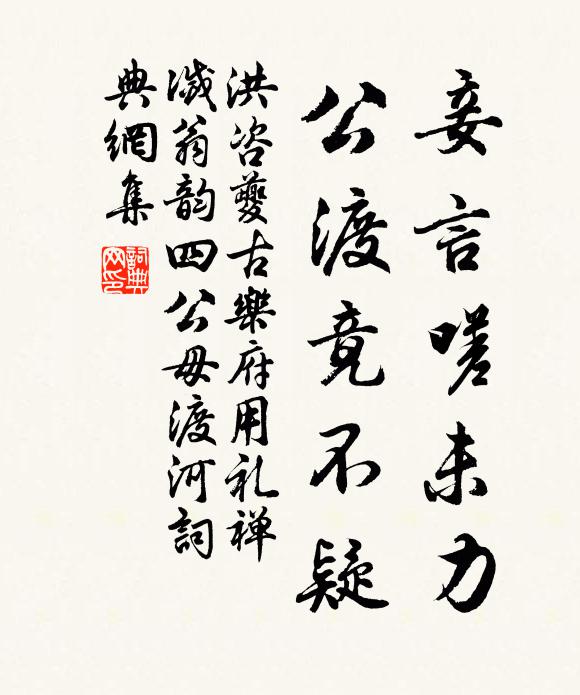 妾言嗟未力
公渡竟不疑
洪咨夔古樂府用礼禅
滅翁韵四公毋渡河詞
典網集
詞典
网印